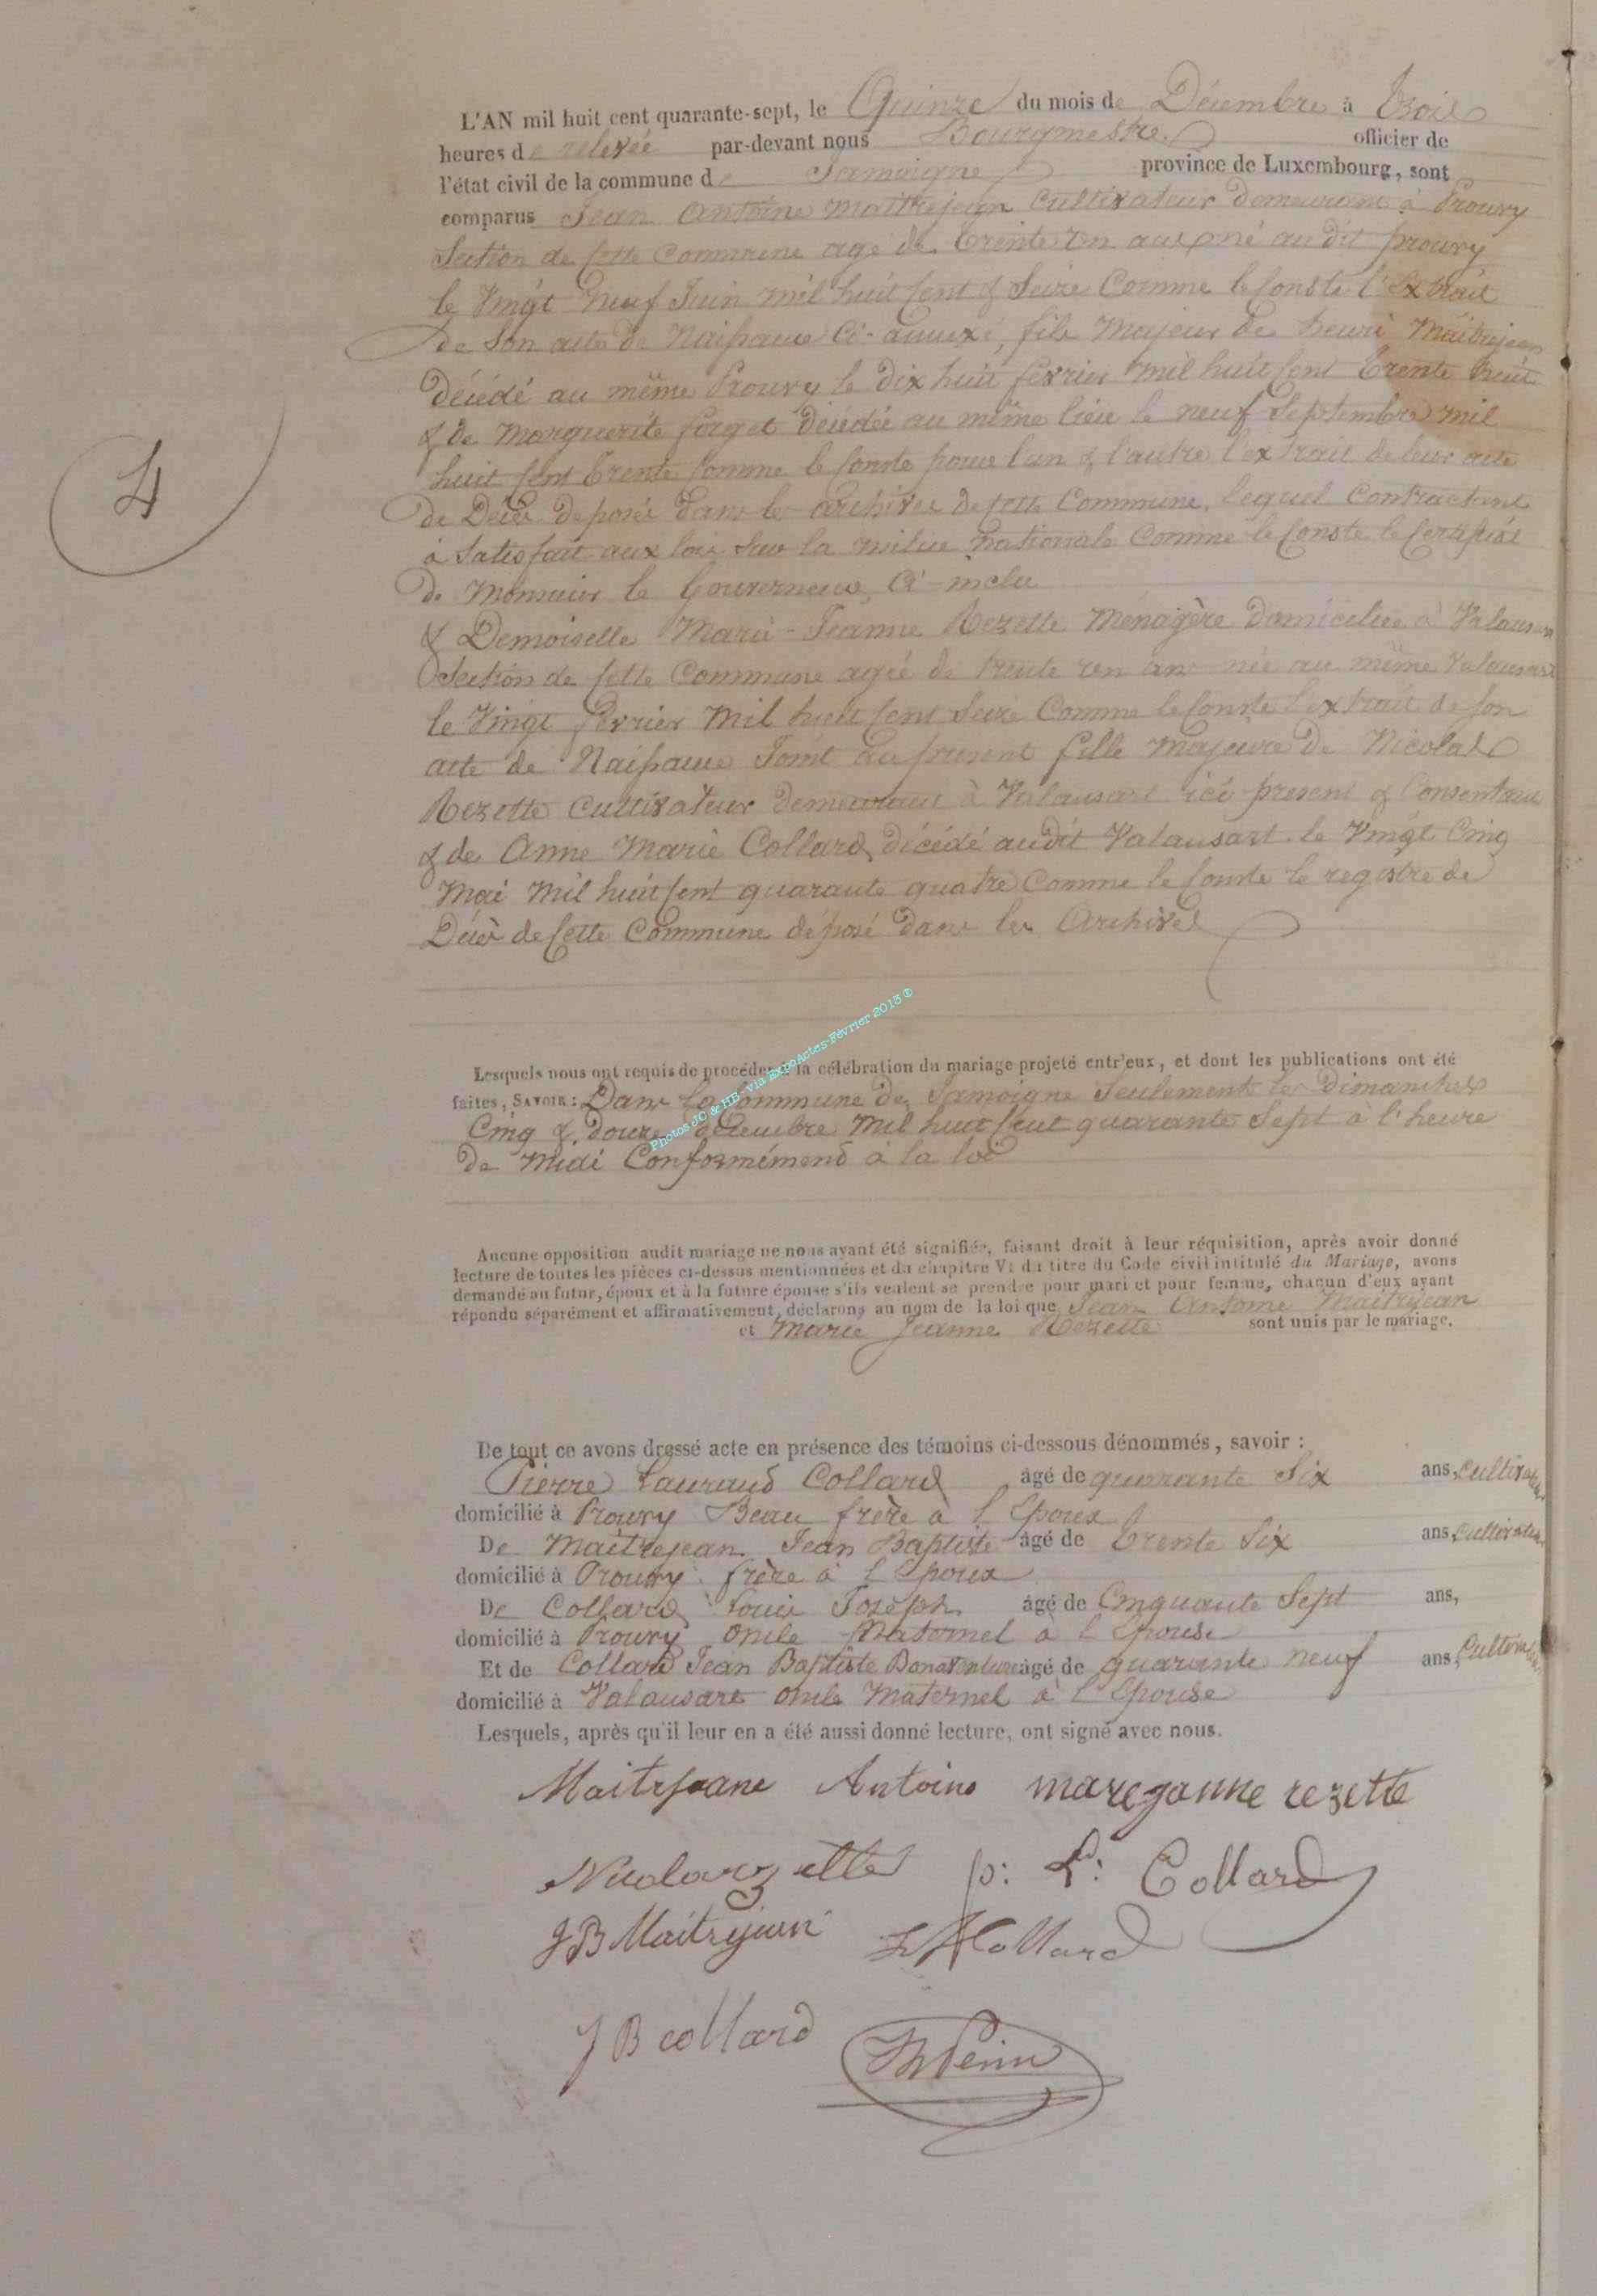 L'AN mil huit cent quarante-sept, le Quinze du mois de Décembre à Trois
heures de relevée par-devant nous Bourgmestre officier de
l'état civil de la commune de Jamoigne province de Luxembourg, sont
comparus Jean Antoine Maitrejean Cultivateur Demeurant à Prouvy
Section de cette Commune agé de trente un ans né au dit prouvy
le Vingt Neuf Juin mil huit cent & Seize Comme le Conste l'Extrait
de Son acte de Naissance Ci-annexé, fils Majeur de henri Maitrejean
Décédé au même Prouvy le Dix huit fevrier mil huit cent trente huit
& de Marguerite forget Décédée au même lieu le neuf Septembre mil
huit cent trente Comme le Conste pour l'un & l'autre l'extrait de leur acte
de Décès déposés dans les archives de cette Commune, lequel Contractant
à Satisfait aux lois Sur la milice nationale Comme le Conste le Certificat
de Monsieur le Gouverneur Ci-inclu
& Demoiselle Marie-Jeanne Rezette Ménagère Domiciliée à Valansart
Section de cette Commune agée de trente un ans née au même Valansart
le Vingt fevrier Mil huit cent Seize Comme le Conste l'extrait de son
acte de Naissance Joint au present fille Majeure de Nicolas
Rezette Cultivateur Demeurant à Valansart ici present & Consentant
& de Anne Marie Collard décédé audit Valansart le Vingt Cinq
Mai Mil huit cent quarante quatre Comme le Conste le registre de
Décès de Cette Commune déposé dans les Archives
Photos JC & HB - via ExpoActes-Février 2013 ®
Lesquels nous ont requis de procéder à la célébration du mariage projeté entr'eux, et dont les publications ont été
faites, SAVOIR : Dans la Commune de Jamoigne Seulement les Dimanches
Cinq & douze décembre Mil huit Cent quarante Sept à l'heure
de Midi Conformément à la loi
Aucune opposition audit mariage ne nous ayant été signifiée, faisant droit à leur réquisition, après avoir donné
lecture de toutes les pièces ci-dessus mentionnées et du chapitre VI du titre du Code civil intitulé du Mariage, avons
demandé au futur, époux et à la future épouse s'ils veulent se prendre pour mari et pour femme, chacun d'eux ayant
répondu séparément et affirmativement, déclarons au nom de la loi que Jean Antoine Maitrejean
et Marie Jeanne Rezette sont unis par le mariage.
De tout ce avons dressé acte en présence des témoins ci-dessous dénommés, savoir :
Pierre Collard agé de quarante Six ans, Cultivateur
domicilié à Prouvy Beau frère à l'Epoux
De Maitrejean Jean Baptiste agé de trente Six ans, Cultivateur
domicilié à Prouvy frère à l'Epoux
De Collard Louis Joseph agé de Cinquante Sept ans,
domicilié à Prouvy Oncle Maternel à l'Epouse
Et de Collard Jean Baptiste Bonaventure agé de quarante neuf ans, Cultivateur
domicilié à Valansart oncle Maternel à l'Epouse
Lesquels, après qu'il leur en a été aussi donné lecture, ont signé avec nous.
Maitrjeane Antoine mareganne rezette
p: Ld: Collard
JB Maitrejean Collard
J B collard Perin
4